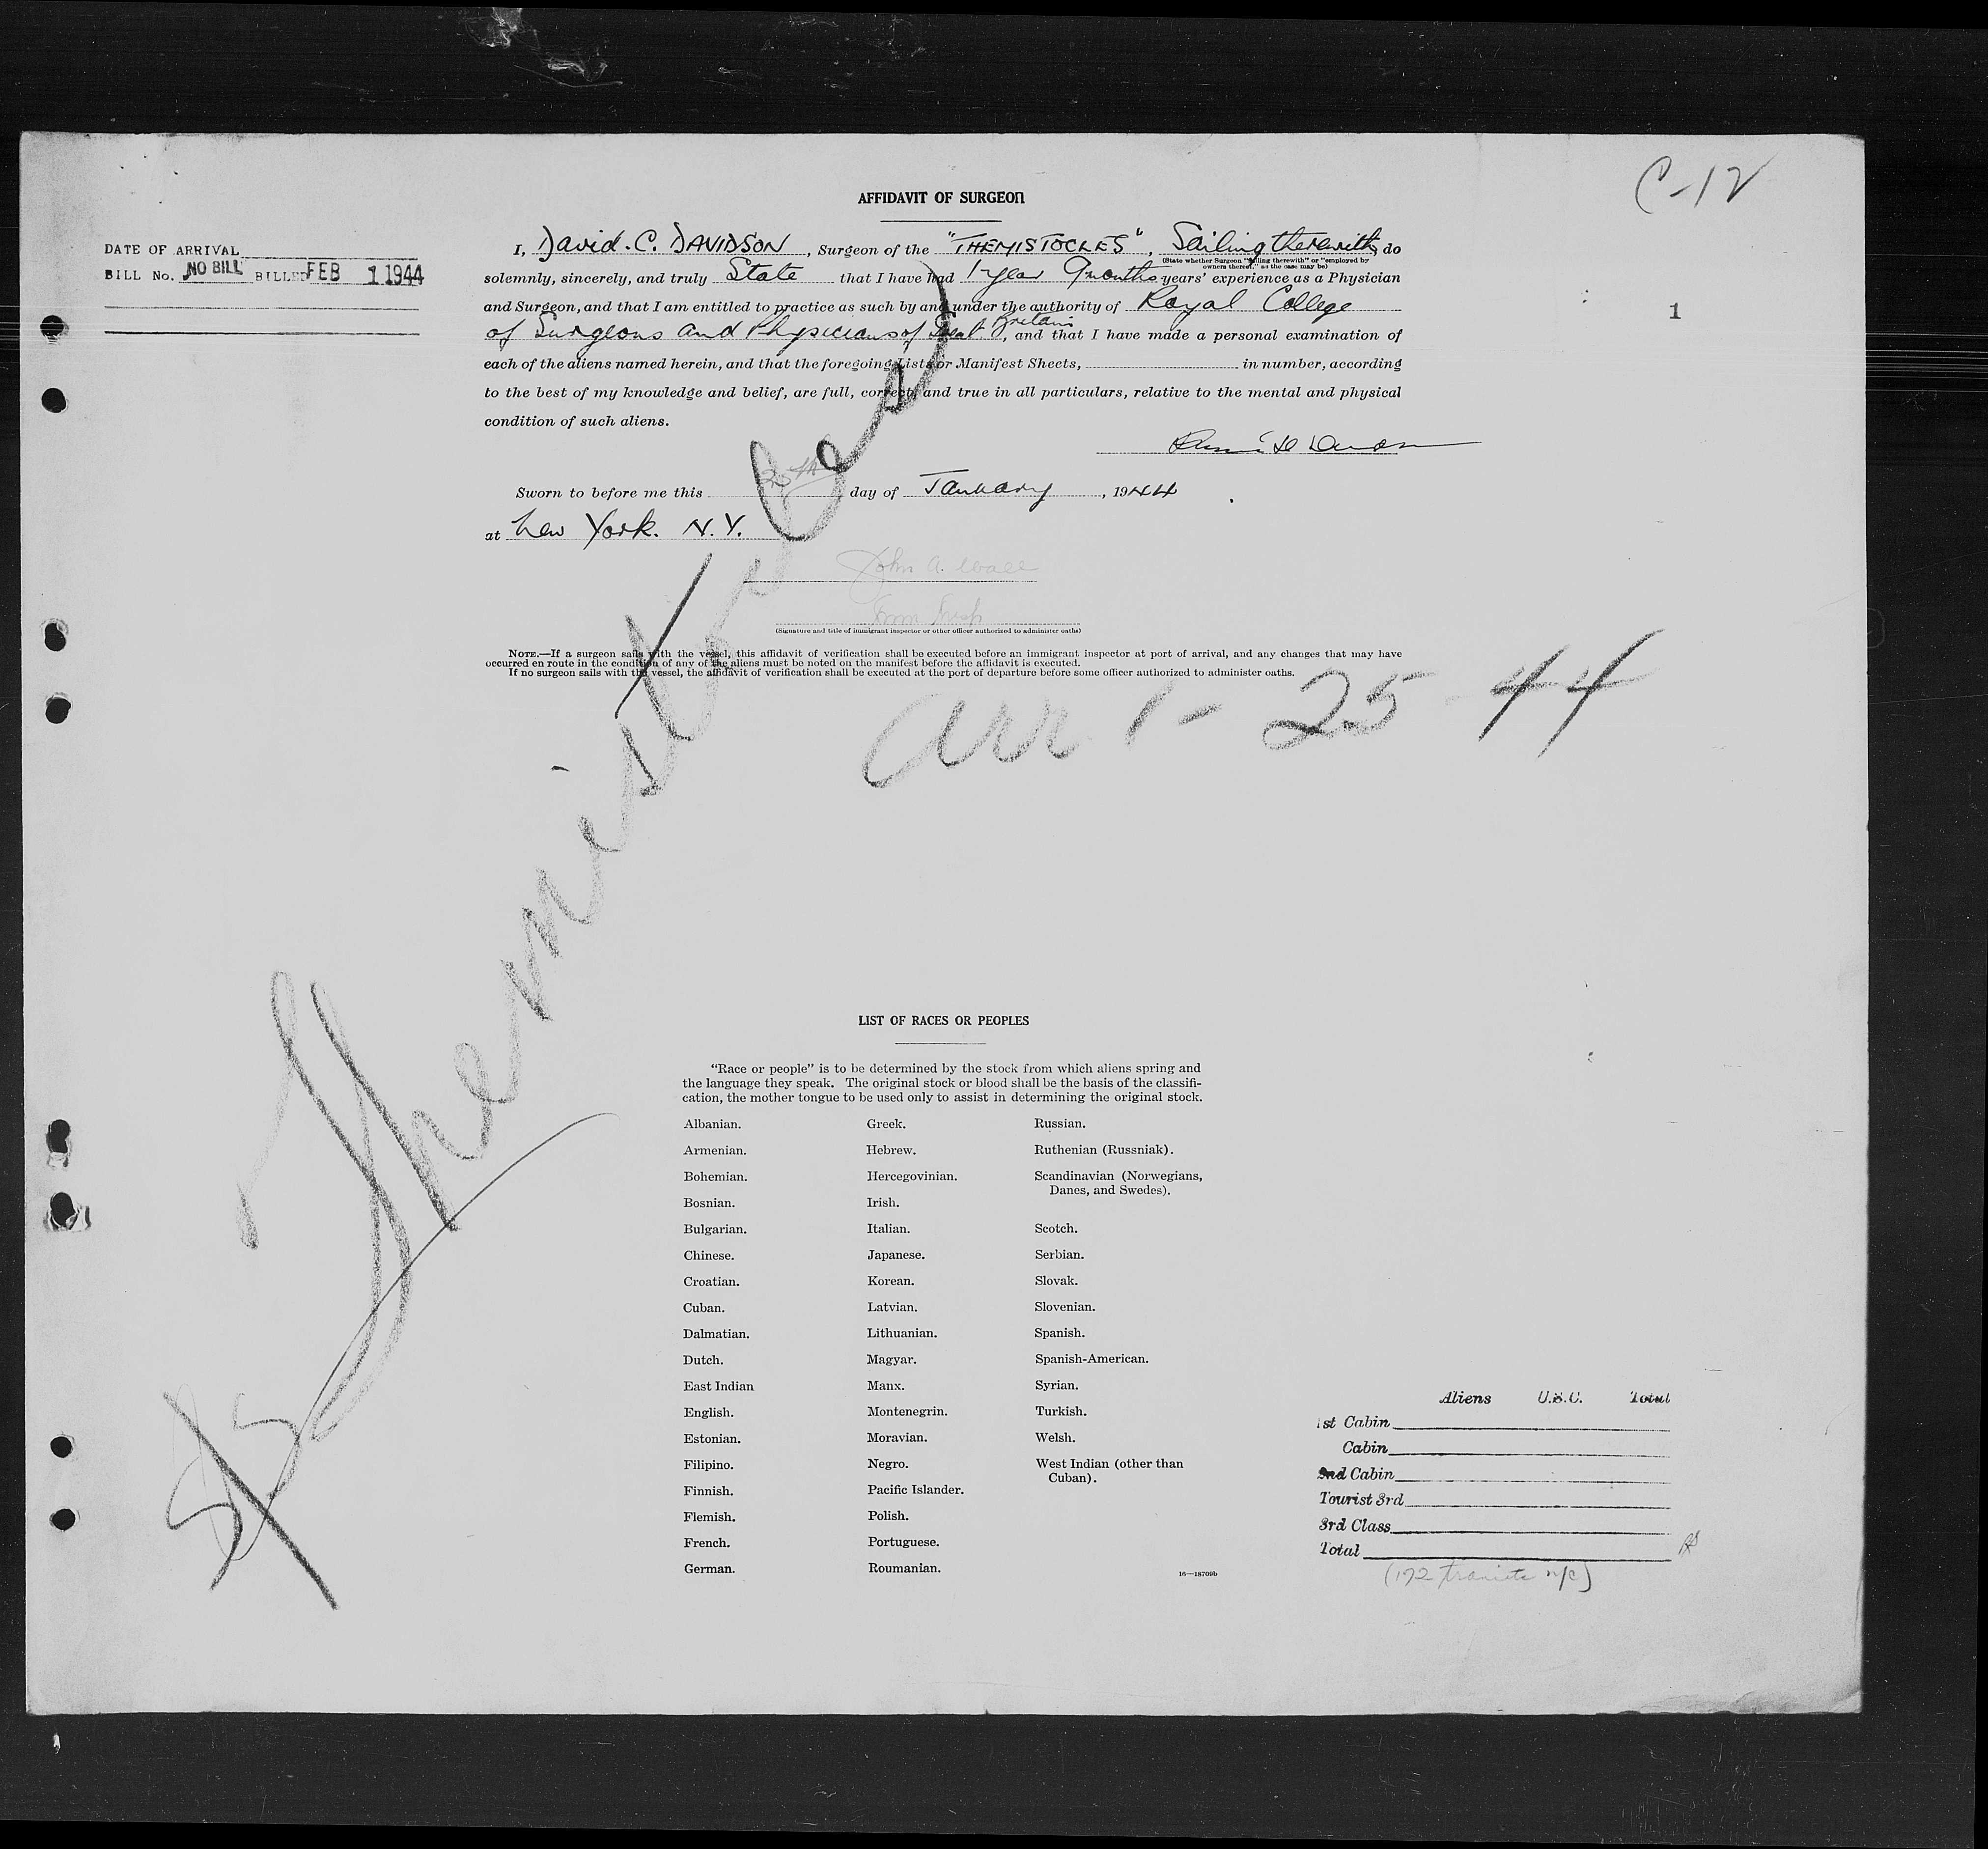 C-12
AFFIDAVIT OF SURGEON
DATE OF ARRIVAL
BILL No. NO BILL BILLED FEB 1 1944
1
I, David. C. DAVIDSON, Surgeon of the "THEMISTOCLES", Sailing therewith, do
(State whether Surgeon "sailing therewith" or "employed by
owners thereof," as the case may be)
solemnly, sincerely, and truly State that I have had 1 year 9 months years' experience as a Physician
and Surgeon, and that I am entitled to practice as such by and under the authority of Royal College
of Surgeons and Physicians of Great Britain, and that I have made a personal examination of
each of the aliens named herein, and that the foregoing Lists or Manifest Sheets, in number, according
to the best of my knowledge and belief, are full, correct, and true in all particulars, relative to the mental and physical
condition of such aliens.
Sworn to before me this 25th day of January, 1944
at New York. N.Y.
John A. Wall
Imm Insp
(Signature and title of immigrant inspector or other officer authorized to administer oaths)
NOTE.—If a surgeon sails with the vessel, this affidavit of verification shall be executed before an immigrant inspector at port of arrival, and any changes that may have
occurred en route in the condition of any of the aliens must be noted on the manifest before the affidavit is executed.
If no surgeon sails with the vessel, the affidavit of verification shall be executed at the port of departure before some officer authorized to administer oaths.
arr 1-25-44
SS Themistocles
LIST OF RACES OR PEOPLES
"Race or people" is to be determined by the stock from which aliens spring and
the language they speak. The original stock or blood shall be the basis of the classifi-
cation, the mother tongue to be used only to assist in determining the original stock.
Albanian.
Armenian.
Bohemian.
Bosnian.
Bulgarian.
Chinese.
Croatian.
Cuban.
Dalmatian.
Dutch.
East Indian
English.
Estonian.
Filipino.
Finnish.
Flemish.
French.
German.
Greek.
Hebrew.
Hercegovinian.
Irish.
Italian.
Japanese.
Korean.
Latvian.
Lithuanian.
Magyar.
Manx.
Montenegrin.
Moravian.
Negro.
Pacific Islander.
Polish.
Portuguese.
Roumanian.
Russian.
Ruthenian (Russniak).
Scandinavian (Norwegians,
Danes, and Swedes).
Scotch.
Serbian.
Slovak.
Slovenian.
Spanish.
Spanish-American.
Syrian.
Turkish.
Welsh.
West Indian (other than
Cuban).
16—18709b
Aliens U.S.C. Total
1st Cabin
Cabin
2nd Cabin
Tourist 3rd
3rd Class
Total
(172 transits n/c)